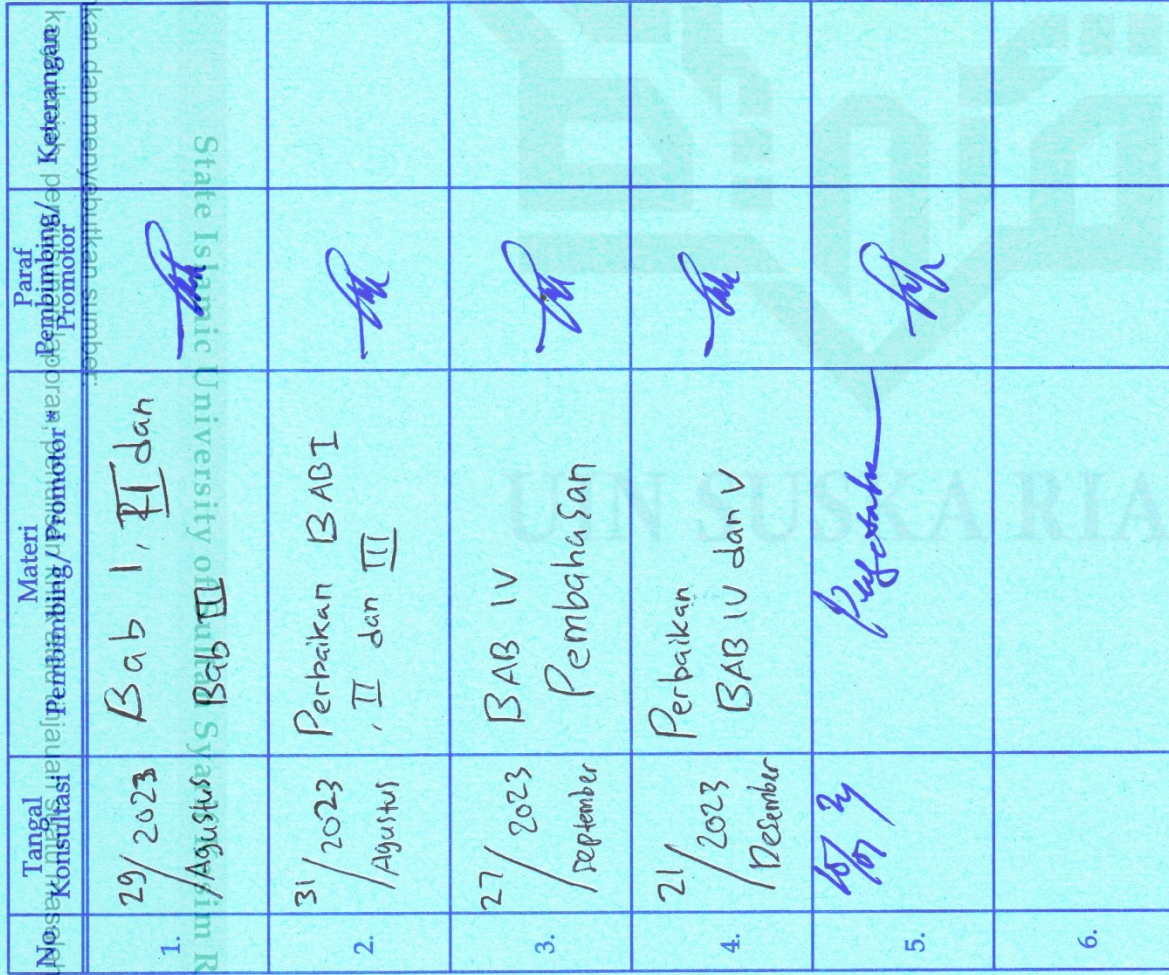 No
Tangal
Konsultasi
Materi
Pembimbing/ Promotor *
Paraf
Pembimbing/
Promotor
Keterangan
1.
29/2023
/Agustus
Bab I, II dan
Bab III
2.
31/2023
/Agustus
Perbaikan BAB I
, II dan III
3.
27/2023
/september
BAB IV
Pembahasan
4.
21/2023
/Desember
Perbaikan
BAB IV dan V
5.
6.
kan dan menyebutkan sumber.
State Islamic University of Sultan Syarif Kasim R
UIN SUSKA RIA